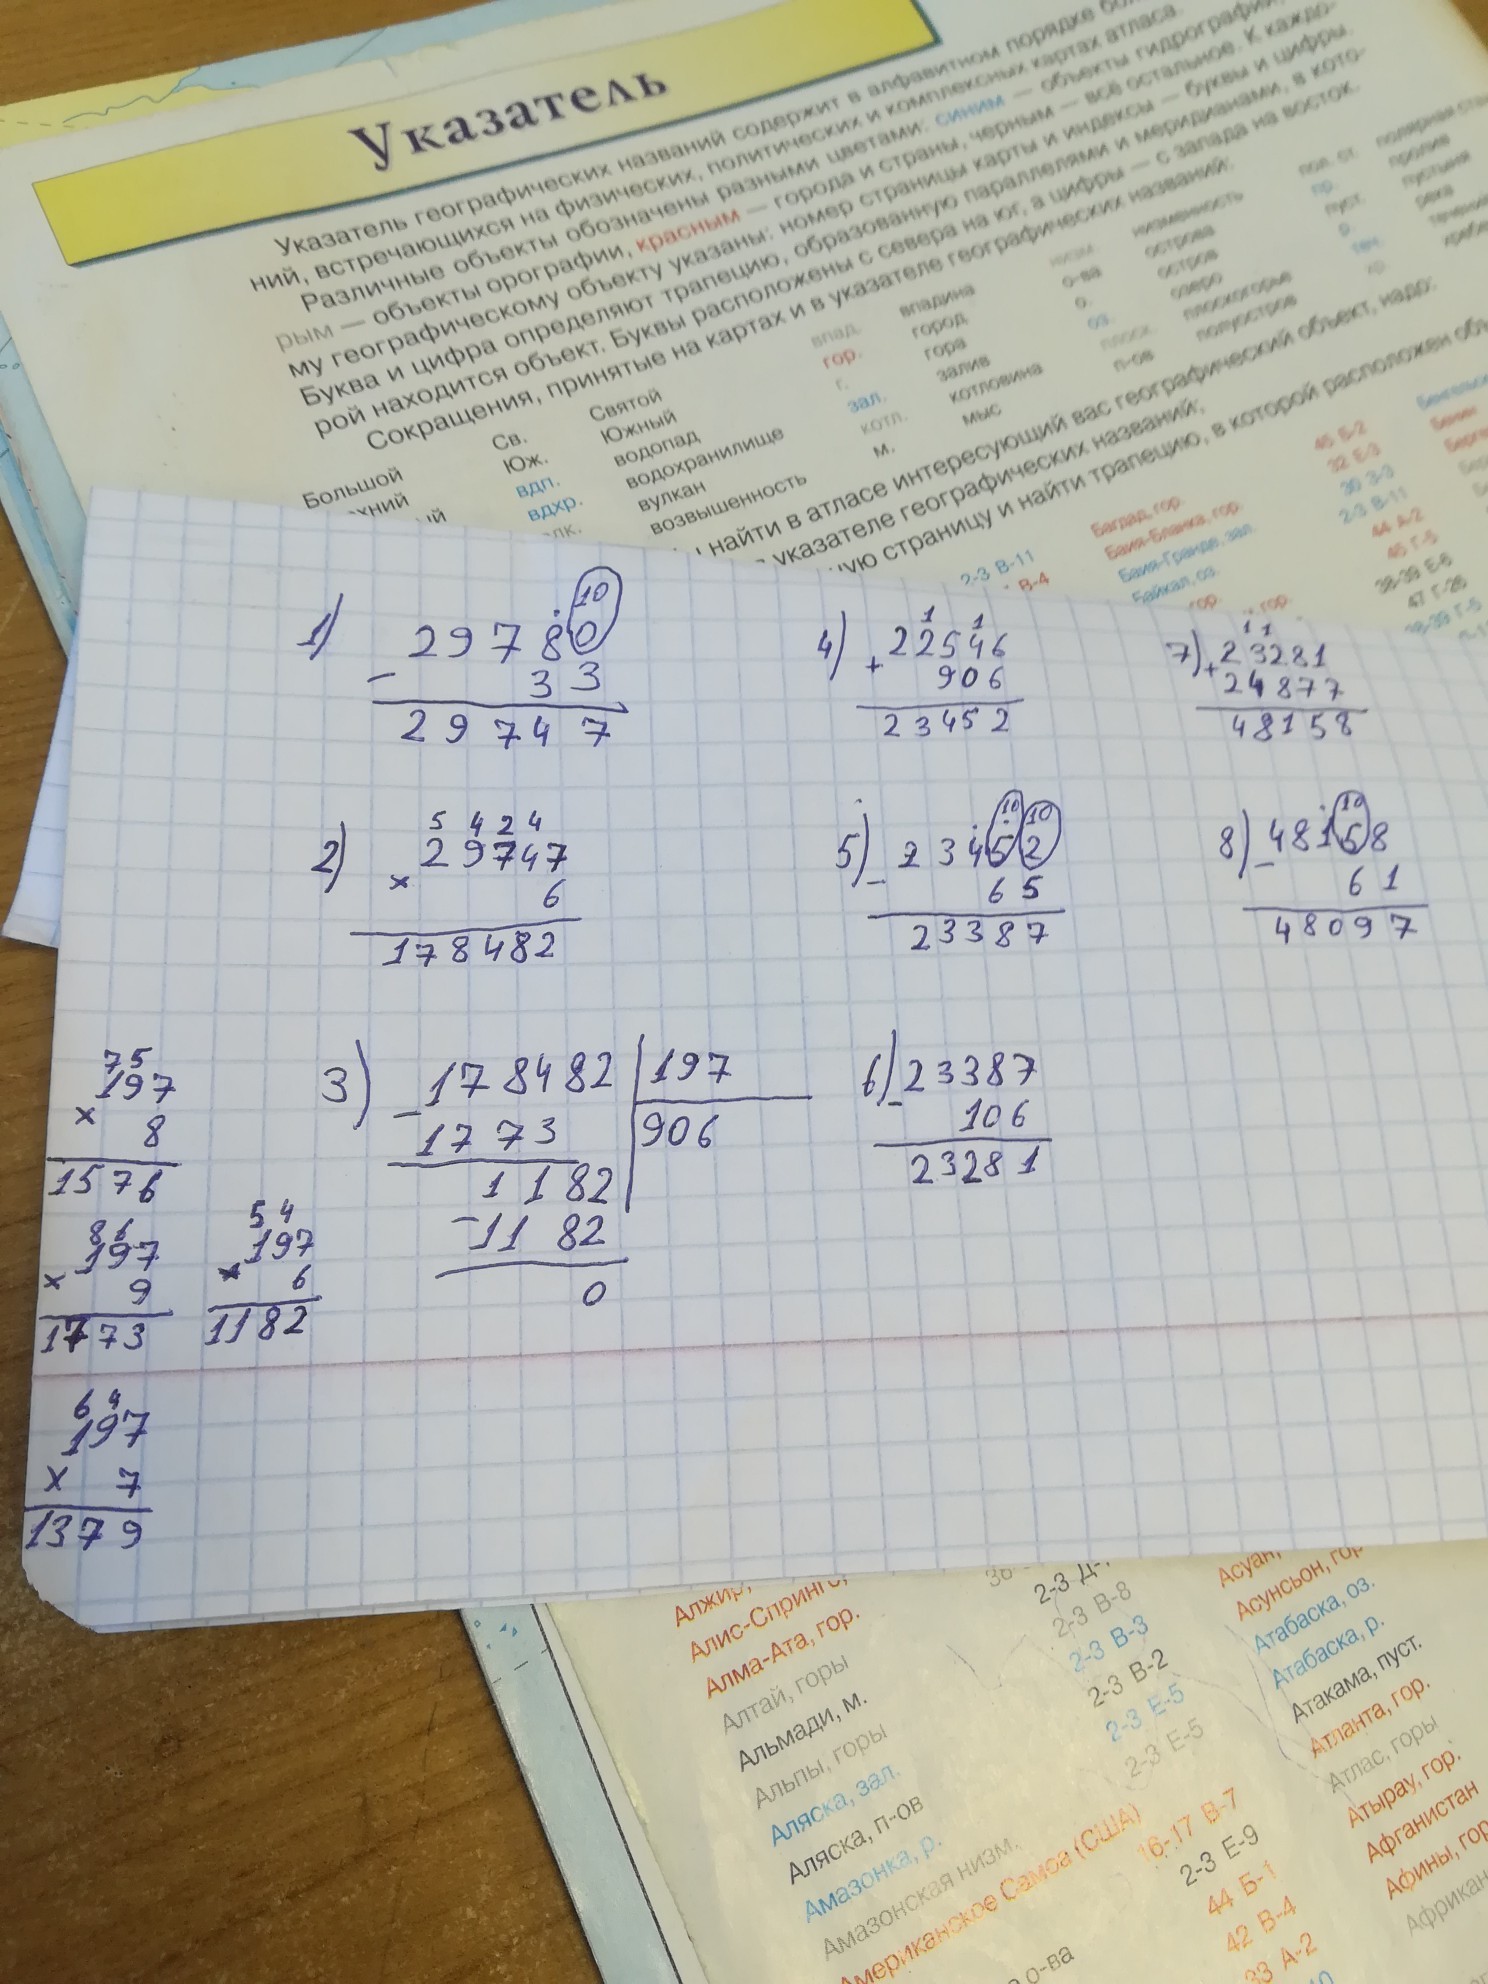 Указатель
Указатель географических названий содержит в алфавитном порядке
ний, встречающихся на физических, политических и комплексных картах атласа.
Различные объекты обозначены разными цветами: синим — объекты гидрографии,
рым — объекты орографии, красным — города и страны, черным — всё остальное. К каждо-
му географическому объекту указаны: номер страницы карты и индексы — буквы и цифры.
Буква и цифра определяют трапецию, образованную параллелями и меридианами, в кото-
рой находится объект. Буквы расположены с севера на юг, а цифры — с запада на восток.
Сокращения, принятые на картах и в указателе географических названий:
Большой Св. Святой впад. впадина о-ва острова
Юж. Южный гор. город о. остров
вдп. водопад г. гора оз. озеро
вдхр. водохранилище зал. залив плоск. плоскогорье
вулкан котл. котловина п-ов полуостров
возвышенность м. мыс
низм. низменность
пол. ст.
пр. пролив
пуст. пустыня
р. река
теч.
хр.
найти в атласе интересующий вас географический объект, надо:
указателе географических названий;
страницу и найти трапецию, в которой расположен
2-3 В-11
В-4
Багдад, гор. 45 Б-2
Баия-Бланка, гор. 32 Е-3
Баия-Гранде, зал. 30 З-3
Байкал, оз. 2-3 В-11
гор. 44 А-2
гор. 45 Г-5
38-39 Е-6
47 Г-26
38-39 Г-5
1)
10
29780
− 33
29747
2)
5 4 2 4
29747
× 6
178482
3)
− 178482 197
1773 906
1182
− 1182
0
7 5
197
× 8
1576
8 6
197
× 9
1773
5 4
197
× 6
1182
6 4
197
× 7
1379
4)
1 1
+ 22546
906
23452
5)
10 10
− 23452
65
23387
6)
− 23387
106
23281
7)
1 1
+ 23281
24877
48158
8)
10
− 48158
61
48097
Алжир,
Алис-Спрингс,
Алма-Ата, гор.
Алтай, горы
Альмади, м.
Альпы, горы
Аляска, зал.
Аляска, п-ов
Амазонка, р.
Амазонская низм.
Американское Самоа (США)
о-ва
2-3 В-8
2-3 В-3
2-3 В-2
2-3 Е-5
2-3 Е-5
16-17 В-7
2-3 Е-9
44 Б-1
42 В-4
33 А-2
Асуан,
Асунсьон, гор
Атабаска, оз.
Атабаска, р.
Атакама, пуст.
Атланта, гор.
Атлас, горы
Атырау, гор.
Афганистан
Афины, гор